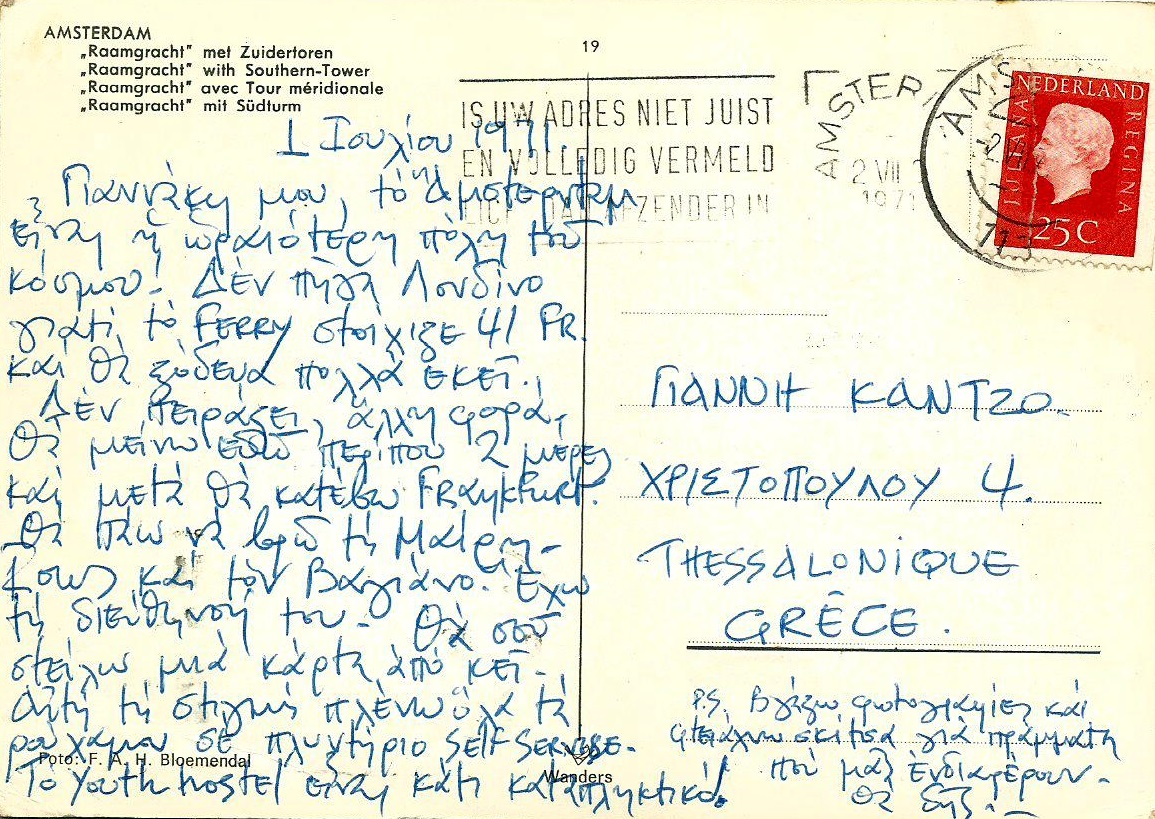 AMSTERDAM
„Raamgracht" met Zuidertoren
„Raamgracht" with Southern-Tower
„Raamgracht" avec Tour méridionale
„Raamgracht" mit Südturm
19
IS UW ADRES NIET JUIST
EN VOLLEDIG VERMELD
DAN AFZENDER IN
AMSTER
2 VII
1971
AMS
NEDERLAND
JULIANA
REGINA
25C
1 Ιουλίου 1971.
Γιαννάκη μου, τὸ Ἄμστερνταμ
εἶναι ἡ ὡραιότερη πόλη τοῦ
κόσμου! Δὲν πῆγα Λονδίνο
γιατὶ τὸ FERRY στοίχιζε 41 FR.
καὶ θὰ ξόδευα πολλὰ ἐκεῖ.
Δὲν πειράζει, ἄλλη φορά.
Θὰ μείνω ἐδῶ περίπου 2 μέρες
καὶ μετὰ θὰ κατέβω FRαγκFURT.
Θὰ πάω νὰ βρῶ τὴ Μαίρη-
ἴσως καὶ τὸν Βαγιάνο. Ἔχω
τὴ διεύθηνσή του. Θὰ σοῦ
στείλω μιὰ κάρτα ἀπὸ κεῖ.
Αὐτὴ τὴ στιγμὴ πλένω ὅλα τὰ
ρούχαμου σὲ πλυντήριο SELF SERVICE.
Τὸ Youth hostel εἶναι κάτι καταπληκτικό!
Foto: F. A. H. Bloemendal
Wanders
ΓΙΑΝΝΗ ΚΑΝΤΖΟ.
ΧΡΙΣΤΟΠΟΥΛΟΥ 4.
THESSALONIQUE
GRÈCE.
P.S. Βγάζω φωτογραφίες καὶ
φτειάχνω σκίτσα γιὰ πράγματα
ποὺ μᾶς ἐνδιαφέρουν.
Θὰ δῇς!